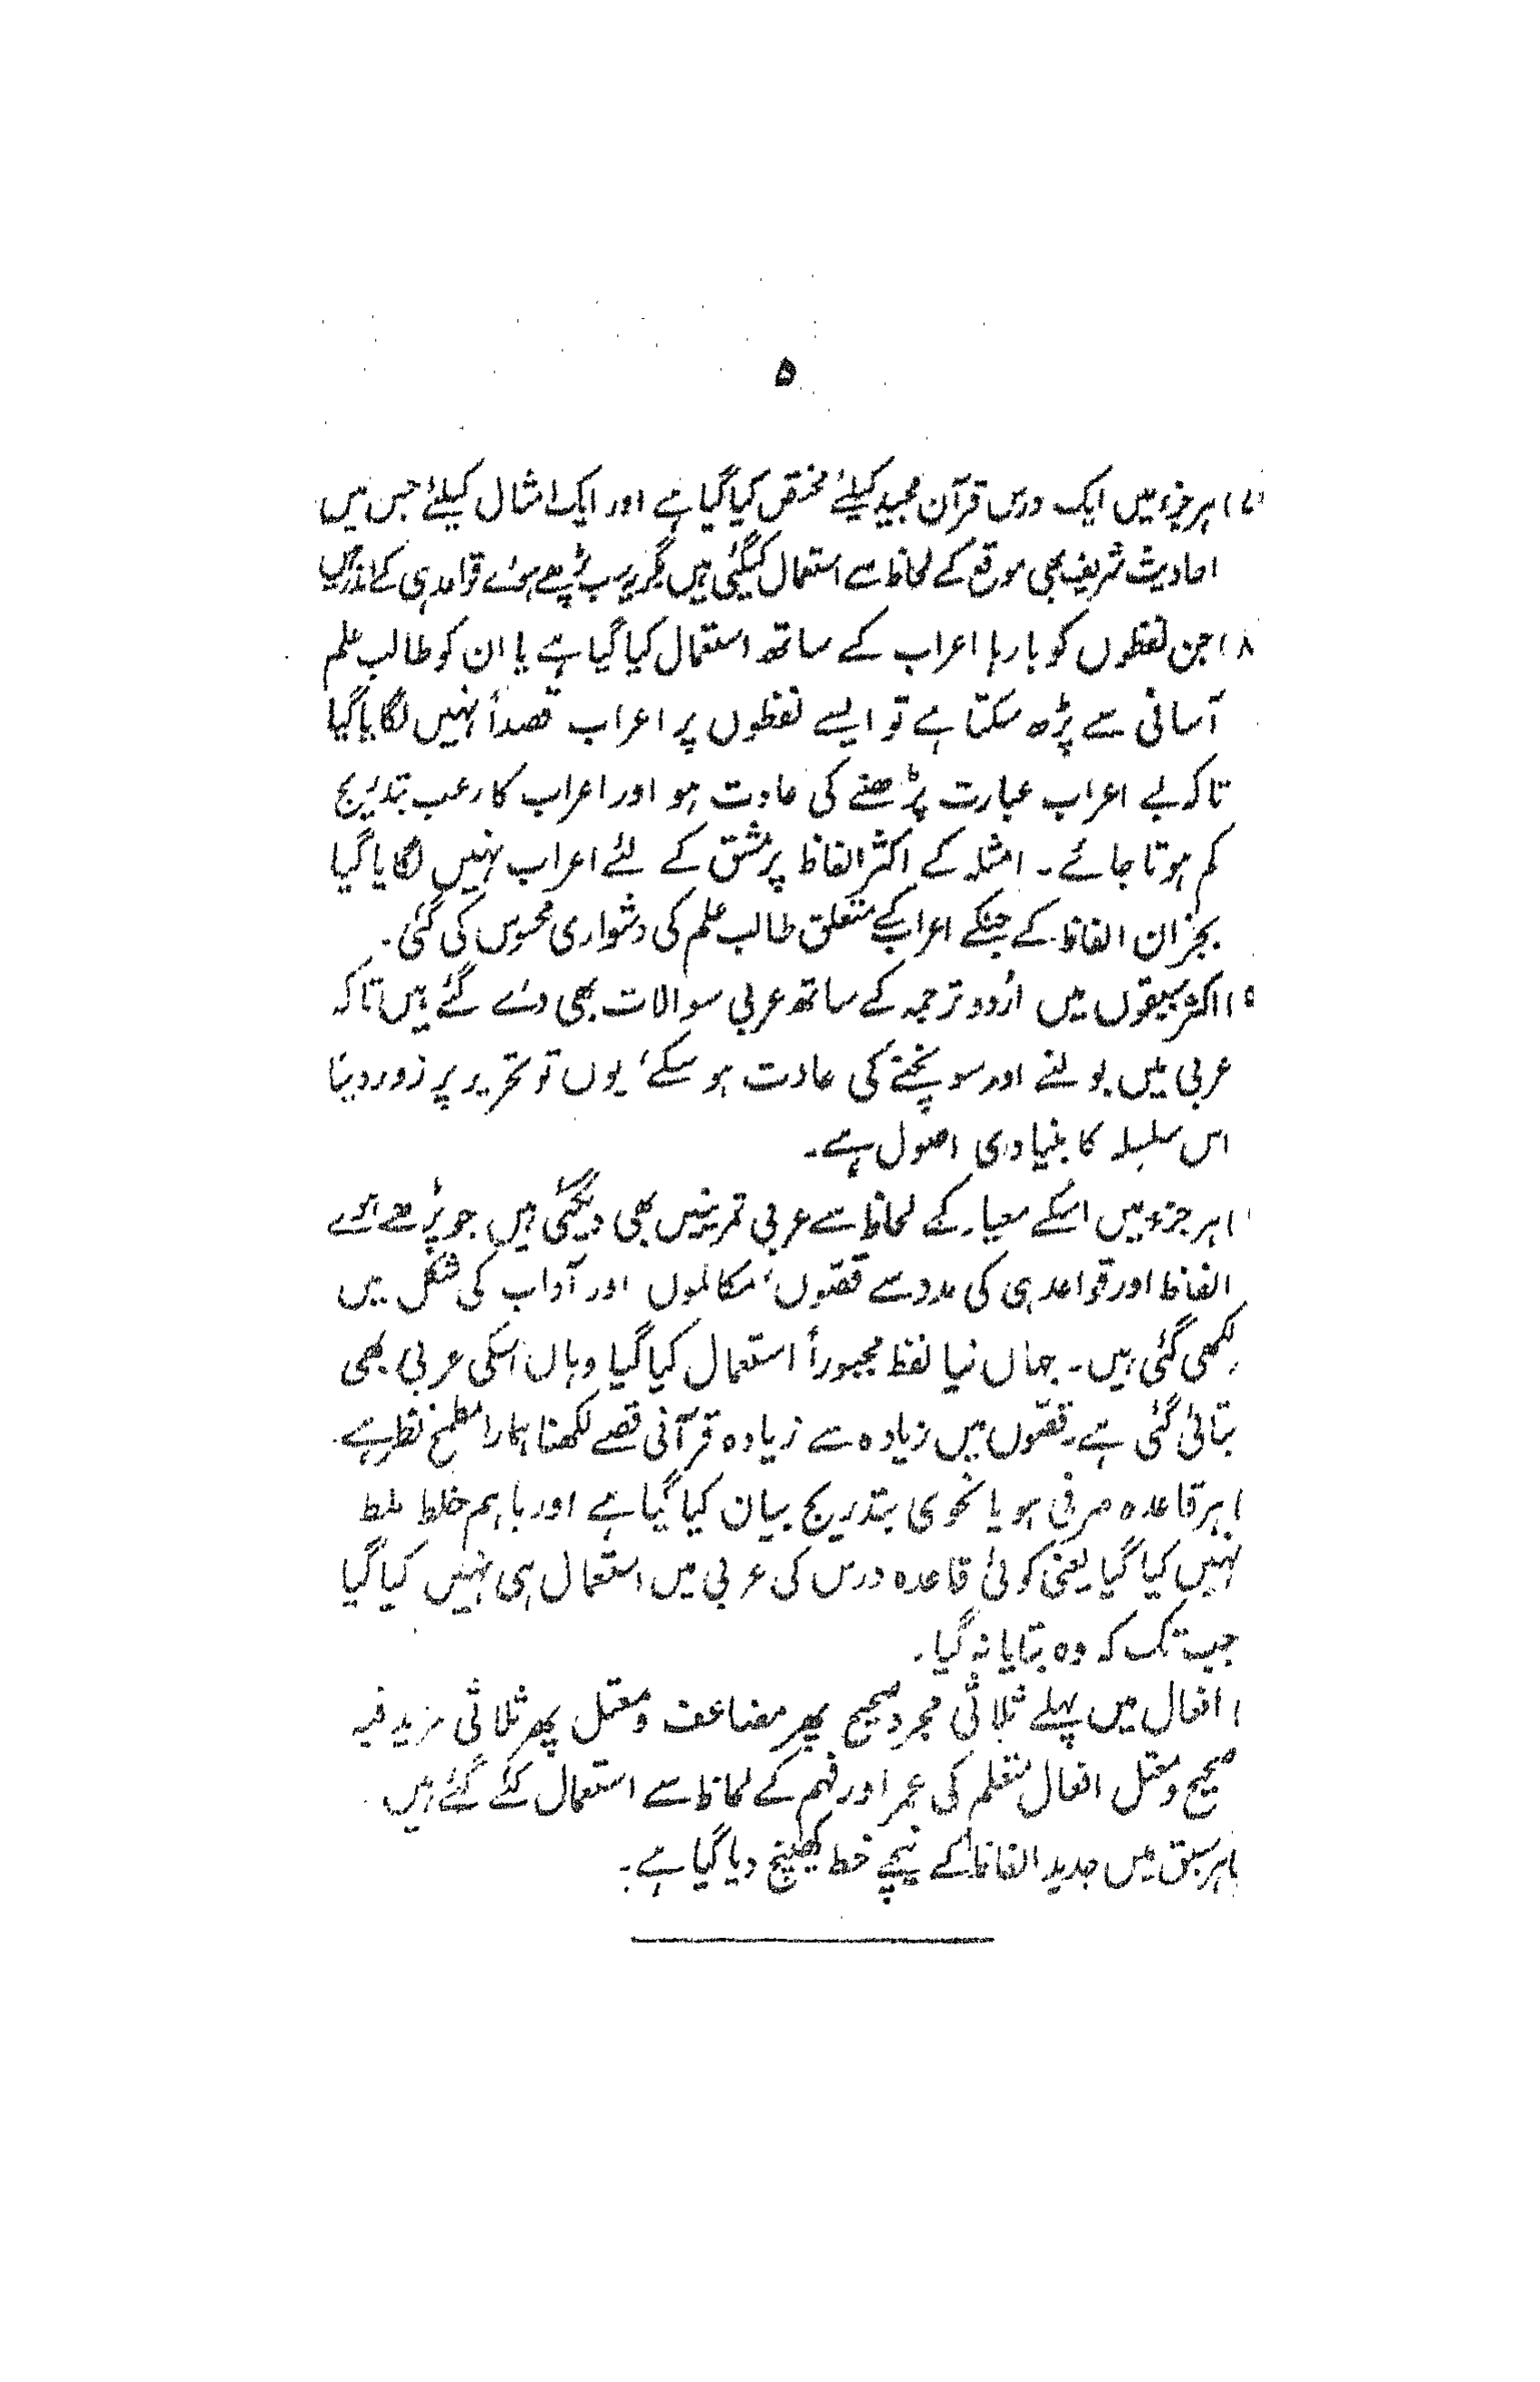 ۵
۷) ہر جزء میں ایک درس قرآن مجید کیلئے مختص کیا گیا ہے اور ایک امثال کیلئے جس میں
احادیث شریف بھی موقع کے لحاظ سے استعمال کیگئی ہیں مگر یہ سب پڑھے ہوئے قواعد ہی کے اندر ہیں
۸) جن لفظوں کو بارہا اعراب کے ساتھ استعمال کیا گیا ہے یا ان کو طالب علم
آسانی سے پڑھ سکتا ہے تو ایسے لفظوں پر اعراب قصداً نہیں لگایا گیا
تاکہ بے اعراب عبارت پڑھنے کی عادت ہو اور اعراب کا رعب بتدریج
کم ہوتا جائے ۔ امثلہ کے اکثر الفاظ پر مشق کے لئے اعراب نہیں لگایا گیا
بجز ان الفاظ کے جنکے اعراب کے متعلق طالب علم کی دشواری محسوس کی گئی ۔
) اکثر سبقوں میں اُردو ترجمہ کے ساتھ عربی سوالات بھی دئے گئے ہیں تاکہ
عربی میں بولنے اور سوپنچنے کی عادت ہو سکے، یوں تو تحریر پر زور دینا
اس سلسلہ کا بنیادی اصول ہے ۔
) ہر جزء میں اسکے معیار کے لحاظ سے عربی تمرینیں بھی دیگئی ہیں جو پڑھے ہوئے
الفاظ اور قواعد ہی کی مدد سے قصّوں، مکالموں اور آداب کی شکل میں
لکھی گئی ہیں ۔ جہاں نیا لفظ مجبوراً استعمال کیا گیا وہاں اسکی عربی بھی
بتائی گئی ہے ۔ قصّوں میں زیادہ سے زیادہ قرآنی قصے لکھنا ہمارا مطمح نظر ہے ۔
) ہر قاعدہ صرفی ہو یا نحوی بتدریج بیان کیا گیا ہے اور باہم خلط ملط
نہیں کیا گیا یعنی کوئی قاعدہ درس کی عربی میں استعمال ہی نہیں کیا گیا
جب تک کہ وہ بتایا نہ گیا ۔
) افعال میں پہلے ثلاثی مجرد صحیح پھر مضاعف و معتل پھر ثلاثی مزید فیہ
صحیح و معتل افعال متعلم کی عمر اور فہم کے لحاظ سے استعمال کئے گئے ہیں
) ہر سبق میں جدید الفاظ کے نیچے خط کھینچ دیا گیا ہے ۔